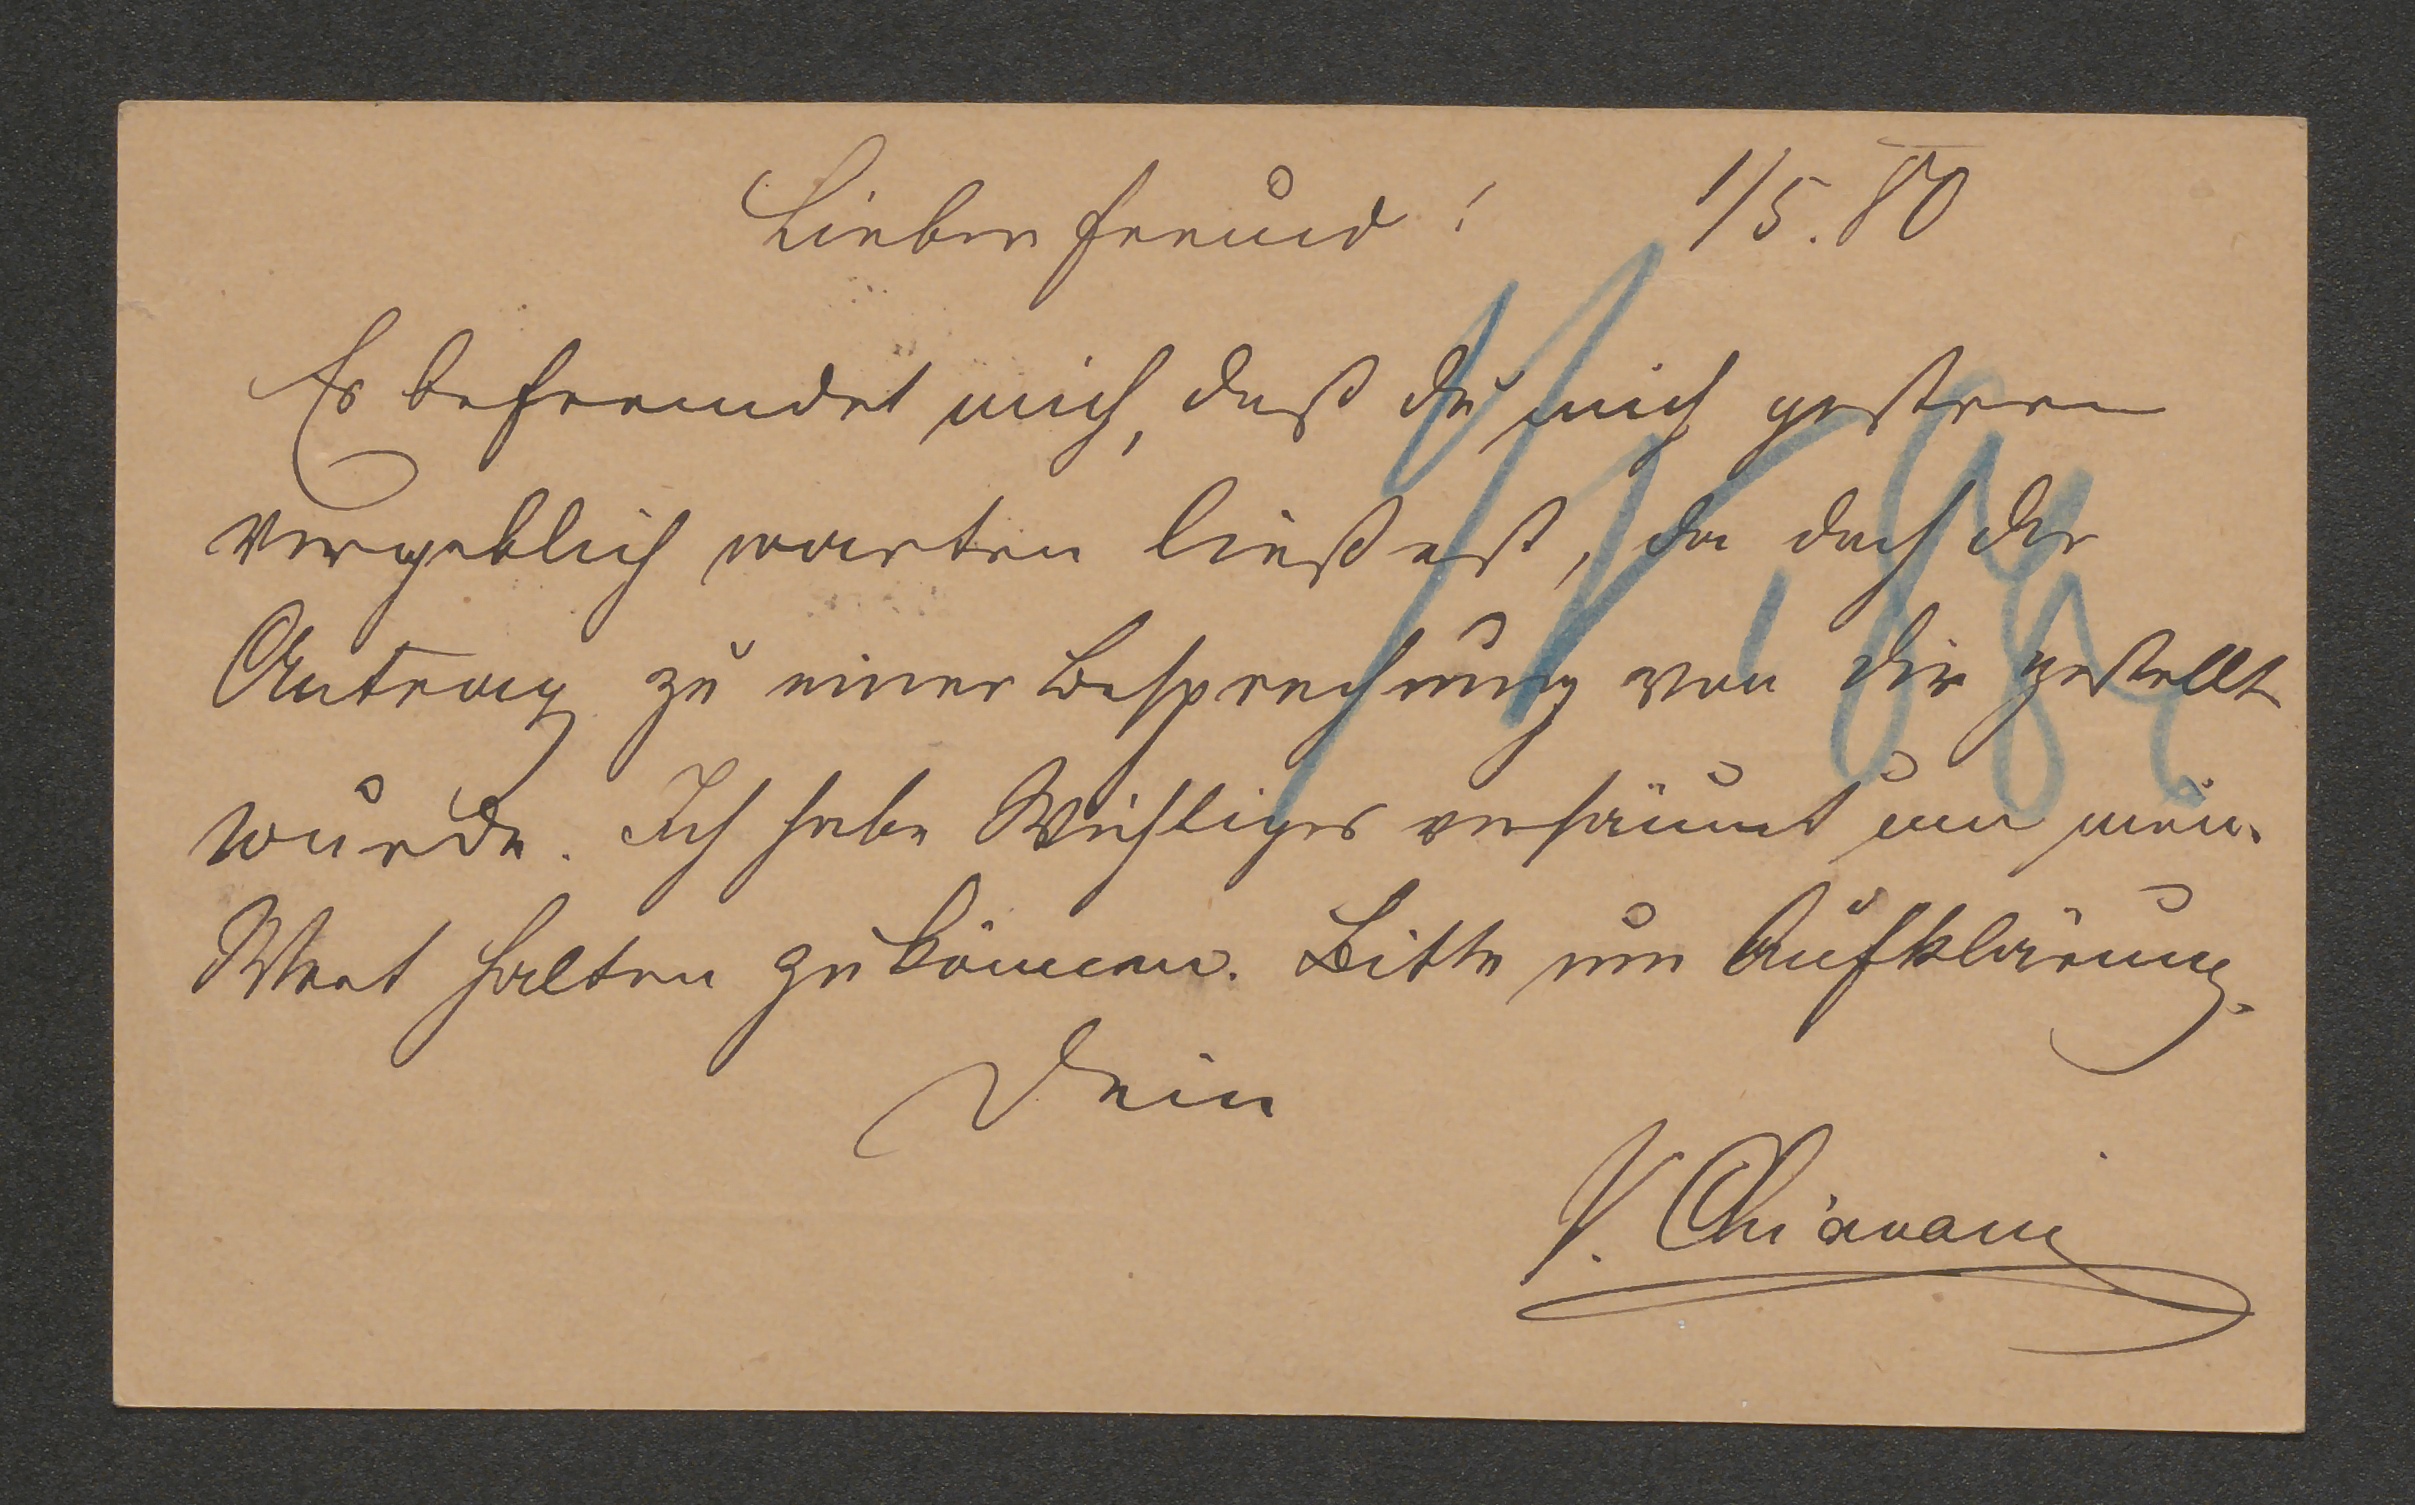 Lieber Freund! 1/5. 80
Es befremdet mich, daß du mich gestern
vergeblich warten ließest, da doch der
Antrag zu einer Besprechung von dir gestellt
wurde. Ich habe Wichtiges versäumt um mein
Wort halten zu können. Bitte um Aufklärung.
Dein
V. Chiavani